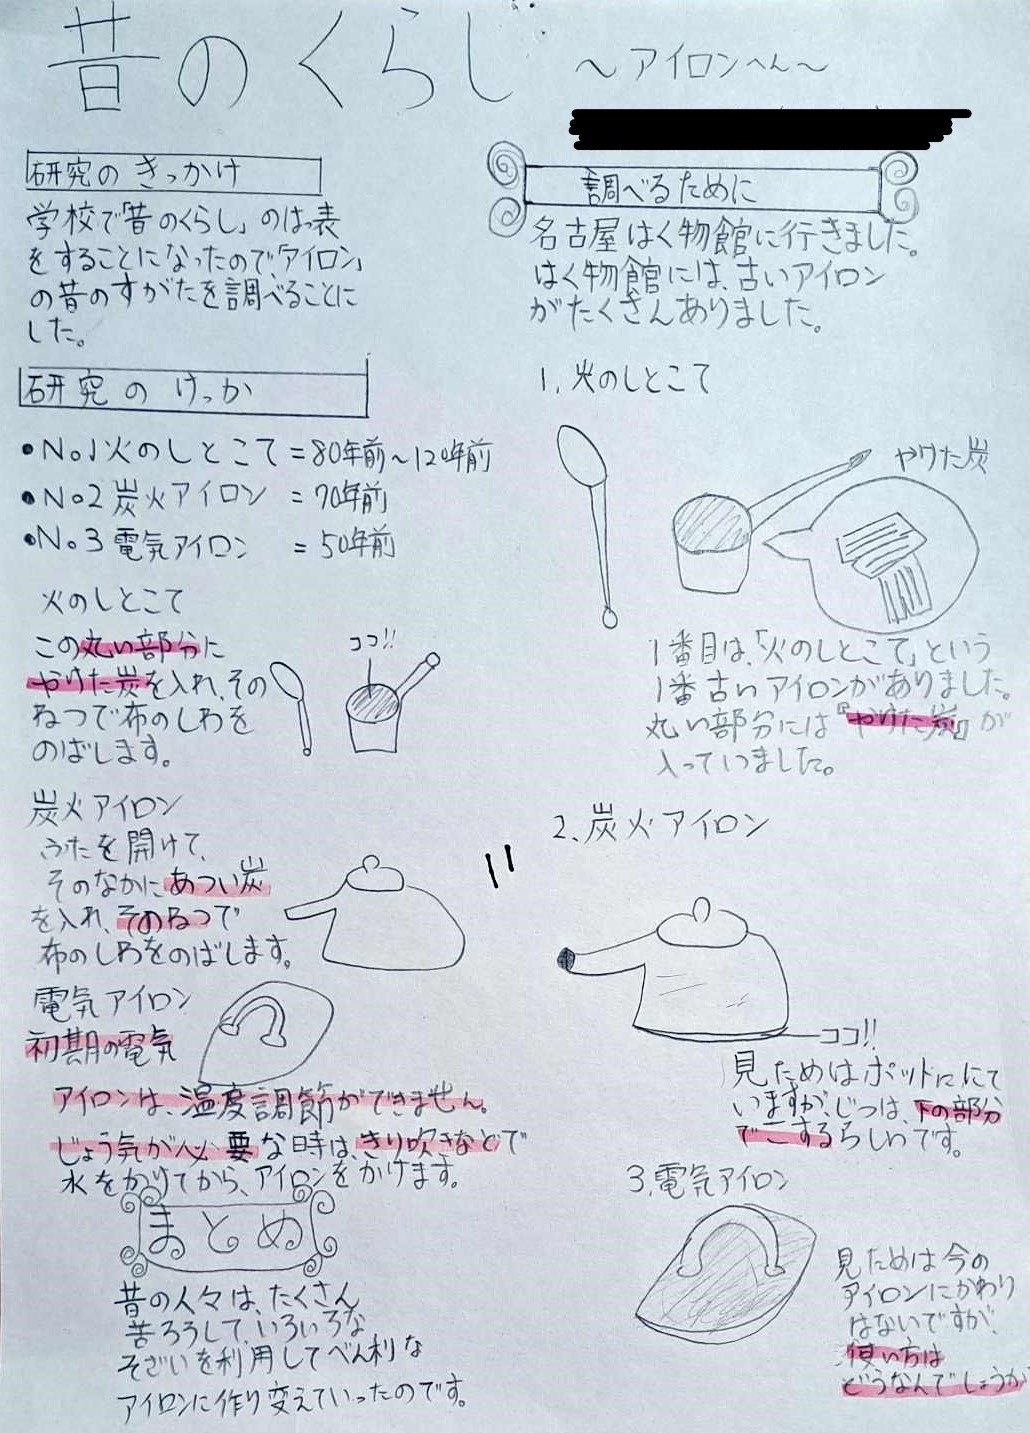 昔のくらし
～アイロンへん～
研究のきっかけ
学校で「昔のくらし」のはっ表
をすることになったので、「アイロン」
の昔のすがたを調べることに
した。
研究のけっか
・No.1火のしとこて=80年前～120年前
・No.2炭火アイロン=70年前
・No.3電気アイロン=50年前
火のしとこて
この丸い部分に
やけた炭を入れ、その
ねつで布のしわを
のばします。
ココ!!
炭火アイロン
ふたを開けて、
そのなかにあつい炭
を入れ、そのねつで
布のしわをのばします。
電気アイロン
初期の電気
アイロンは、温度調節ができません。
じょう気が必要な時は、きり吹きなどで
水をかけてから、アイロンをかけます。
まとめ
昔の人々は、たくさん
苦ろうして、いろいろな
そざいを利用してべん利な
アイロンに作り変えていったのです。
調べるために
名古屋はく物館に行きました。
はく物館には、古いアイロン
がたくさんありました。
1.火のしとこて
やけた炭
1番目は、「火のしとこて」という
1番古いアイロンがありました。
丸い部分には『やけた炭』が
入っていました。
2.炭火アイロン
ココ!!
見ためはポットににて
いますが、じつは、下の部分
でこするらしいです。
3.電気アイロン
見ためは今の
アイロンにかわり
はないですが、
使い方は
どうなんでしょうか